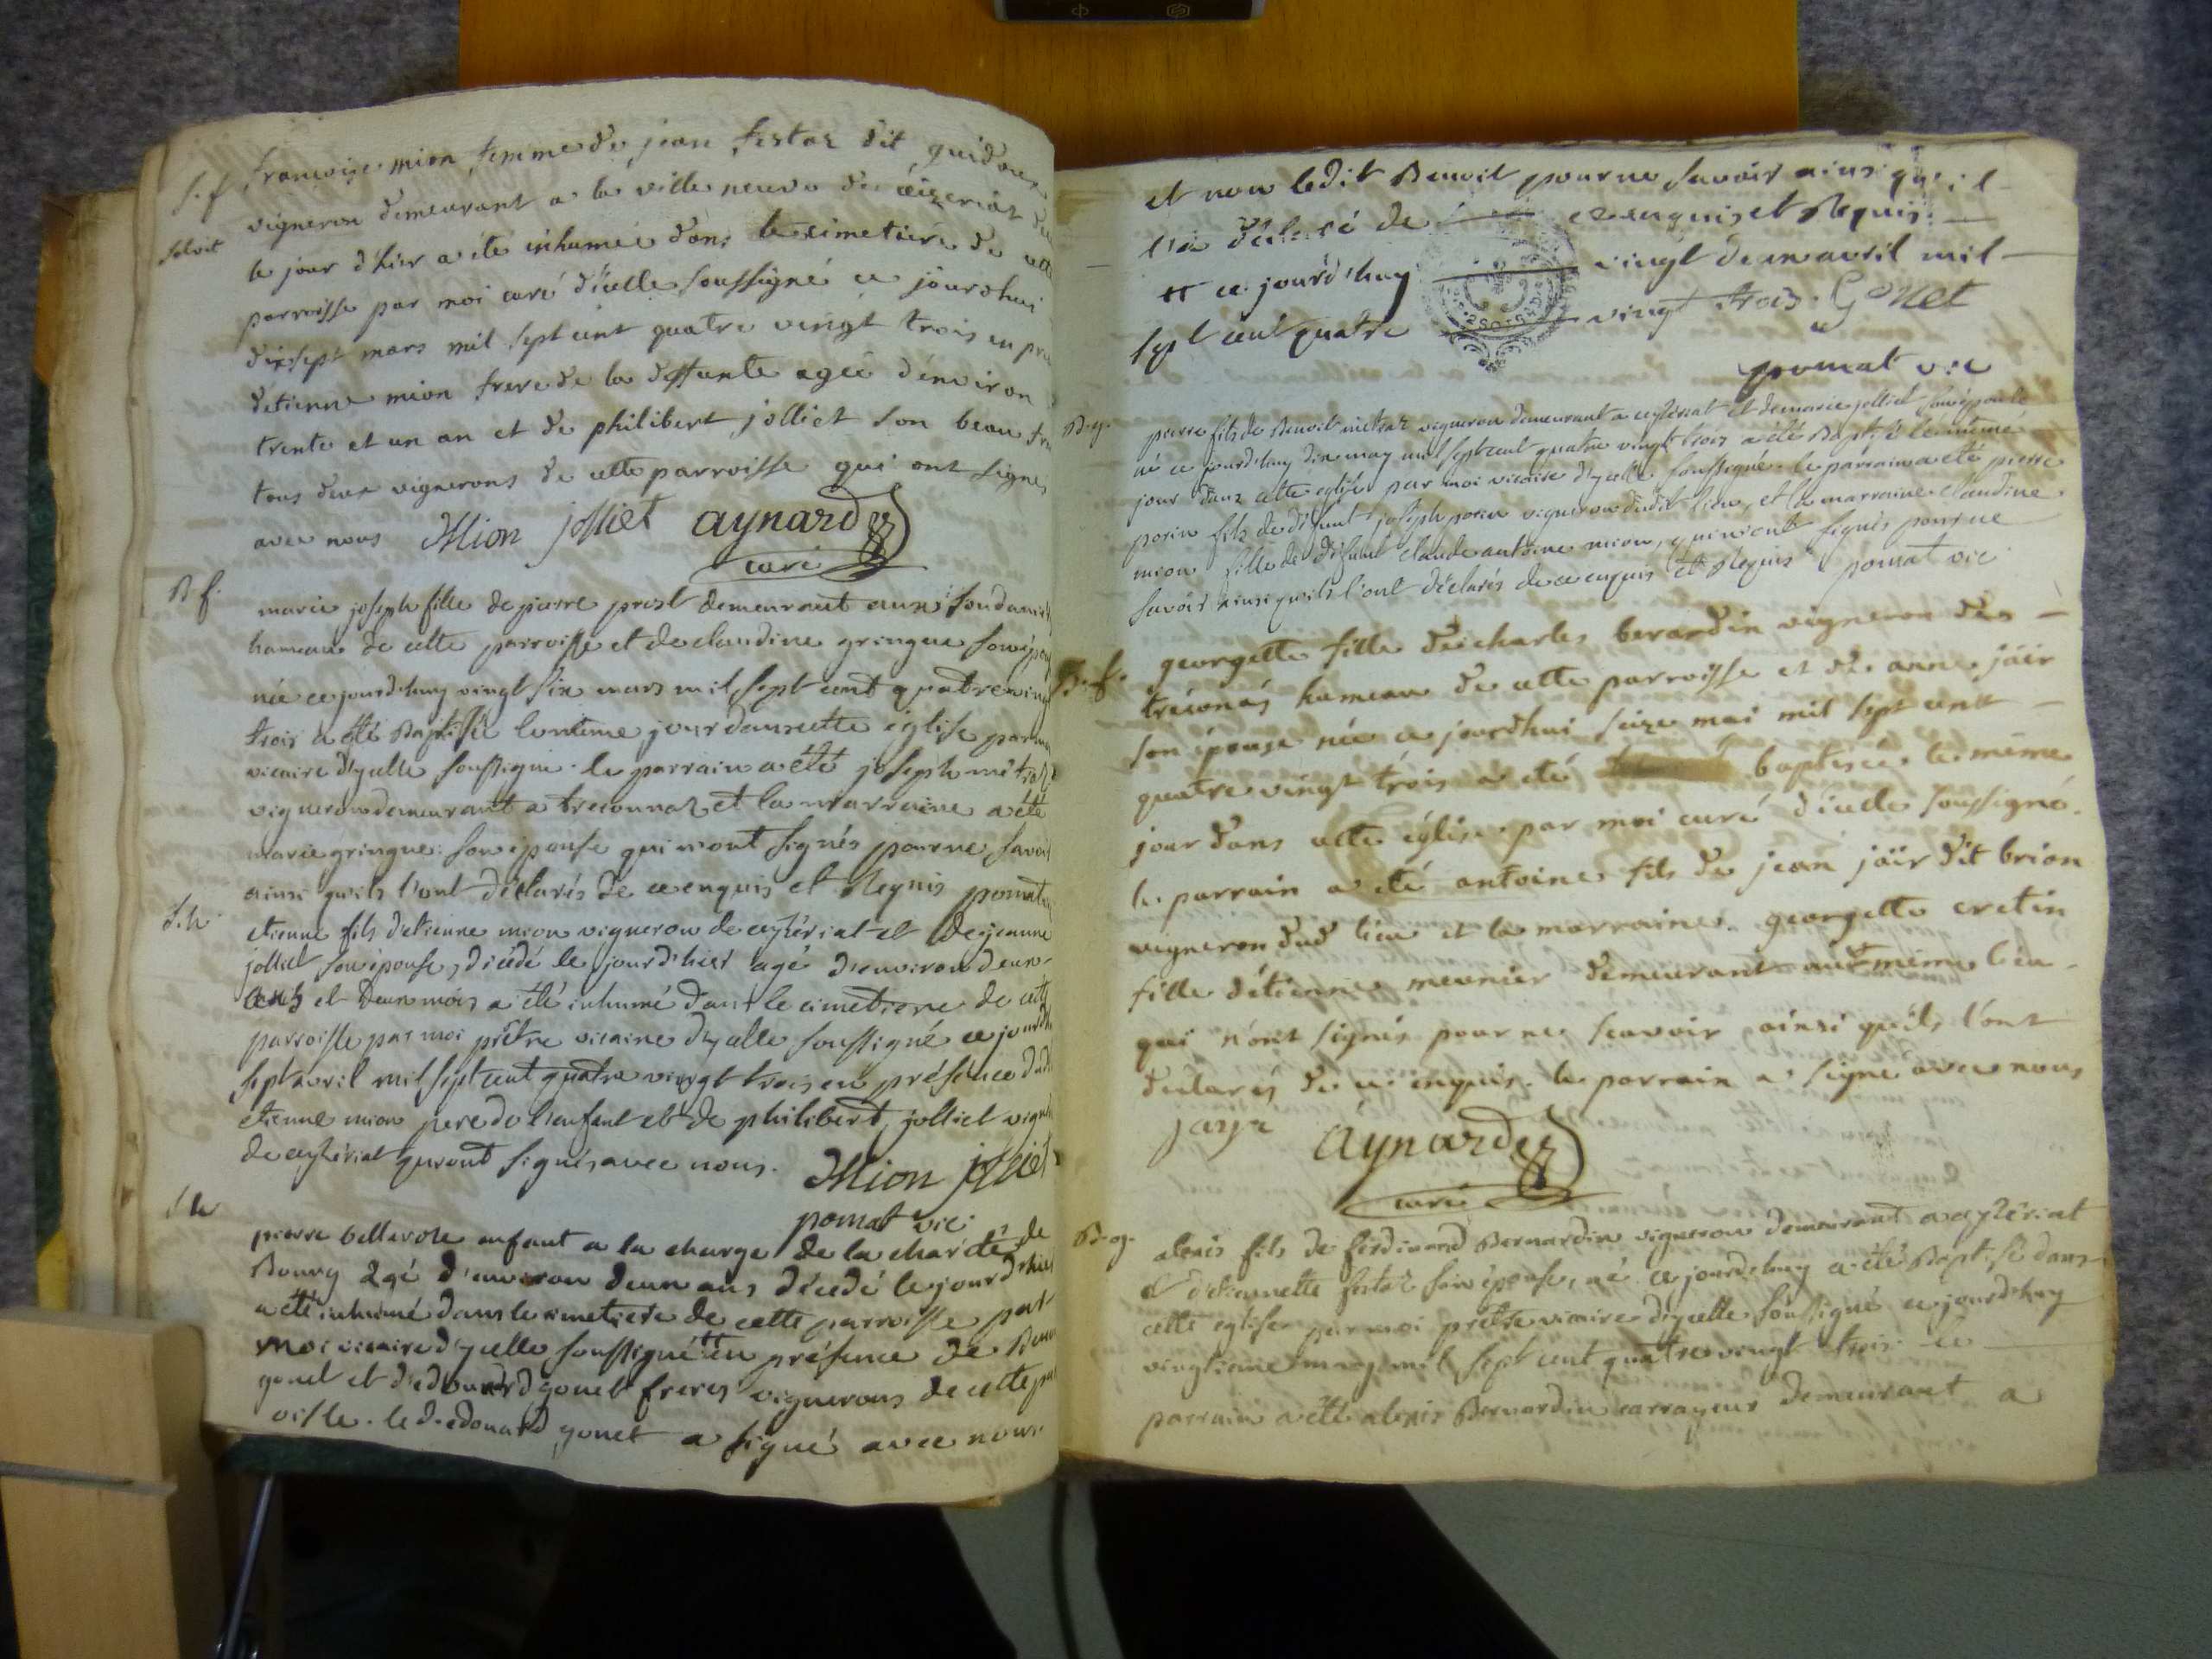 S. f
solvit
francoise mion femme de jean festaz dit guidon
vigneron demeurant a la ville neuve de ceizeriat
le jour d'hier a ete inhumée dans le cimetiere de cette
parroisse par moi curé d'icelle soussigné ce jourdhui
dixsept mars mil sept cent quatre vingt trois en
detienne mion frere de la deffunte agée d'environ
trente et un an et de philibert jolliet son beau
tous deux vignerons de cette parroisse qui ont signes
avec nous Mion jolliet aynard
curé
B f.
marie joseph fille de pierre prost demeurant aux
hameau de cette parroisse et de claudine gringue son
née ce jourd'huy vingt six mars mil sept cent quatre
trois a été Baptisée le même jour dans cette église par
vicaire d'ycelle soussigné. le parrain a été joseph
vigneron demeurant a treconnaz et la marraine a été
marie gringue son épouse qui n'ont signés pour ne savoir
ainsi qu'ils l'ont déclarés de ce enquis et Requis pomat
S. h
etienne fils d'etienne mion vigneron de ceyzériat et de jeanne
jolliet son épouse, décédé le jour d'hier agé d'environ deux
ans et deux mois a été inhumé dans le cimetiere de cette
parroisse par moi prêtre vicaire d'ycelle soussigné ce
sept avril mil sept cent quatre vingt trois en présence
etienne mion pere de l'enfant et de philibert jolliet
de ceyzériat qui ont signés avec nous. Mion jolliet
pomat vic
pierre bellerose enfant a la charge de la charité de
Bourg agé d'environ deux ans décédé le jour d'hier
a été inhumé dans le cimetiere de cette parroisse par
moi vicaire d'ycelle soussigné en présence de
gonet et d'edouard gonet freres vignerons de cette
oisse. le d. edouard gonet a signé avec nous
et non ledit Benoit pour ne savoir ainsi qu'il
l'a déclaré de ce enquis et Requis
ce jourd'huy vingt deux avril mil
sept cent quatre vingt trois. Gonet
pomat vic
B. g.
pierre fils de Benoit metraz vigneron demeurant a ceyzériat et de marie jolliet son épouse
né ce jourd'huy dix may mil sept cent quatre vingt trois a été Baptisé le même
jour dans cette eglise par moi vicaire d'ycelle soussigné. le parrain a été pierre
porin fils de défunt joseph porin vigneron dudit lieu, et la marraine claudine
mion fille de défunt claude antoine mion, qui n'ont signés pour ne
savoir ainsi qu'ils l'ont déclarés de ce enquis et Requis pomat vic
B. f.
georgette fille de charles berardin vigneron de
tréconas hameau de cette parroisse et de anne jair
son épouse née ce jourdhui seize mai mil sept cent
quatre vingt trois a été baptisée le même
jour dans cette église par moi curé d'icelle soussigné
le parrain a été antoine fils de jean jair dit brion
vigneron dud lieu et la marraine georgette cretin
fille d'étienne meunier demeurant aud même lieu
qui n'ont signés pour ne scavoir ainsi qu'ils l'ont
declarés de ce enquis. le parrain a signé avec nous
jayr aynard
curé
B. g.
alexis fils de ferdinand Bernardin vigneron demeurant a ceyzériat
et d'etiennette festaz son épouse, né ce jourd'huy a été Baptisé dans
cette eglise par moi prêtre vicaire d'ycelle soussigné ce jourd'huy
vingtieme may mil sept cent quatre vingt trois. le
parrain a été alexis Bernardin carrayeur demeurant a